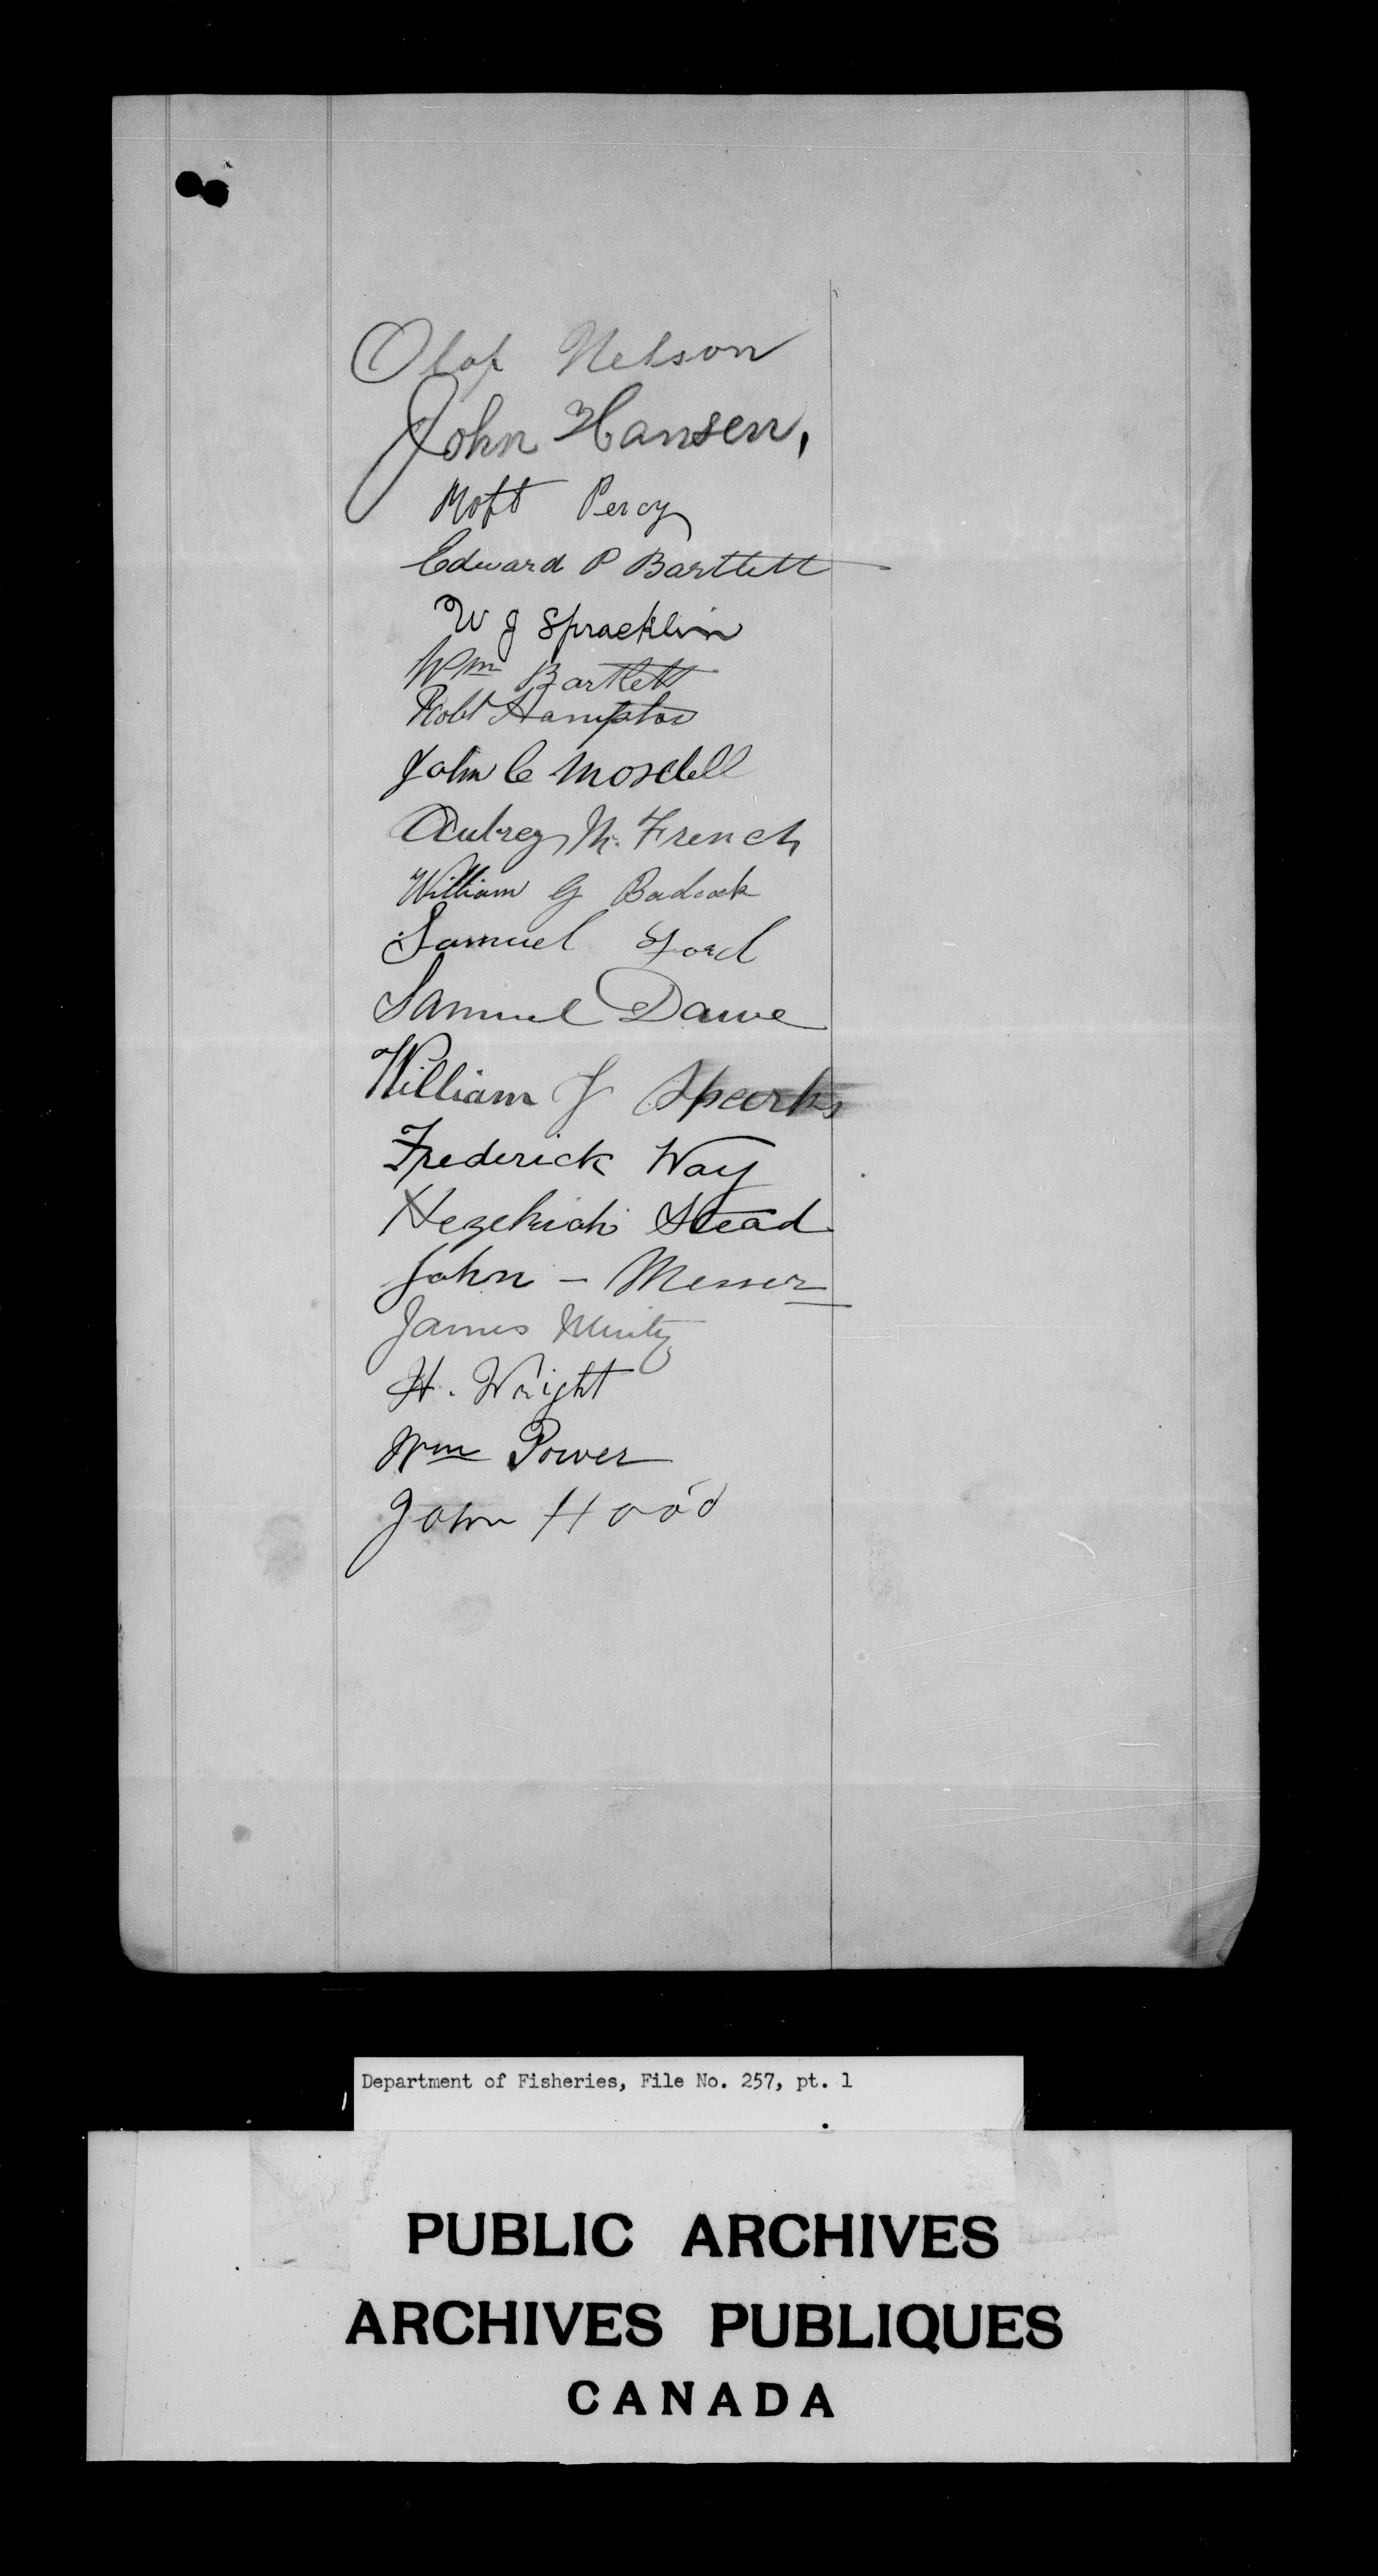 Olof Nelson
John Hansen,
Percy
Edward P Bartlett
W J Spracklin
Wm Bartlett
Robt Hampton
John C Mosdell
Aubrey M. French
William G Badcock
Samuel Ford
Samuel Dawe
William J Sparks
Frederick Way
Hezekiah Stead
John - Mercer
James Minty
H. Wright
Wm Power
John Hood
Department of Fisheries, File No. 257, pt. 1
PUBLIC ARCHIVES
ARCHIVES PUBLIQUES
CANADA